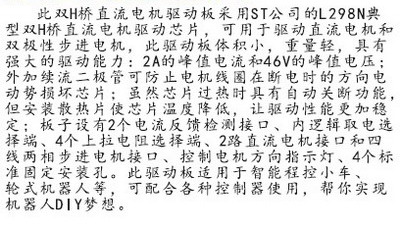 此双H桥直流电机驱动板采用ST公司的L298N典
型双H桥直流电机驱动芯片，可用于驱动直流电机和
双极性步进电机，此驱动板体积小，重量轻，具有
强大的驱动能力：2A的峰值电流和46V的峰值电压；
外加续流二极管可防止电机线圈在断电时的方向电
动势损坏芯片；虽然芯片过热时具有自动关断功能，
但安装散热片使芯片温度降低，让驱动性能更加稳
定；板子设有2个电流反馈检测接口、内逻辑取电选
择端、4个上拉电阻选择端、2路直流电机接口和四
线两相步进电机接口、控制电机方向指示灯、4个标
准固定安装孔。此驱动板适用于智能程控小车、
轮式机器人等，可配合各种控制器使用，帮你实现
机器人DIY梦想。